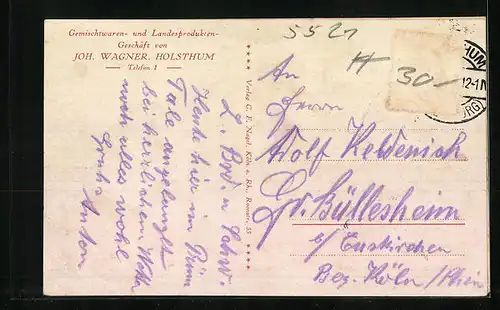 Gemischtwaren- und Landesprodukten-
Geschäft von
JOH. WAGNER, HOLSTHUM
Telefon 1
5521
30-
HUM
12-1 N
RG)
Verlag G. F. Nagel, Köln a. Rh., Remter. 55
L. Brd. u. Schw.
Heute hier im Prüm
Tale angelangt
bei herrlichem Wett.
noch alles wohl
Gruß
Anton
An
Herrn
Adolf Heldenich
Gr. Büllesheim
b/ Euskirchen
Bez. Köln / Rhein